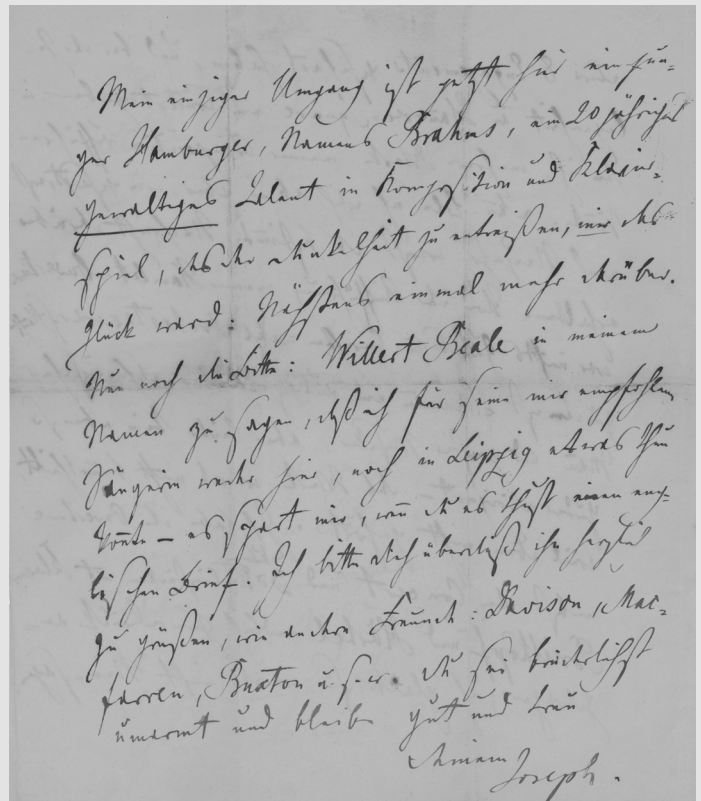 Mein einziger Umgang ist jetzt hier ein jun-
ger Hamburger, Namens Brahms, ein 20 jähriges
gewaltiges Talent in Komposition und Klavier-
spiel, das der Dunkelheit zu entreißen, mir das
Glück ward: Nächstens einmal mehr darüber.
Nun noch die Bitte: Willert Beale in meinem
Namen zu sagen, daß ich für seine mir empfohlene
Sängerin weder hier, noch in Leipzig etwas thun
konnte – es spart mir, wenn du es thust einen eng-
lischen Brief. Ich bitte dich überdieß ihn herzlich
zu grüßen, wie andere Freunde: Davison, Mac-
farren, Buxton u.s.w. Du sei brüderlichst
umarmt und bleibe gut und treu
Deinem
Joseph.